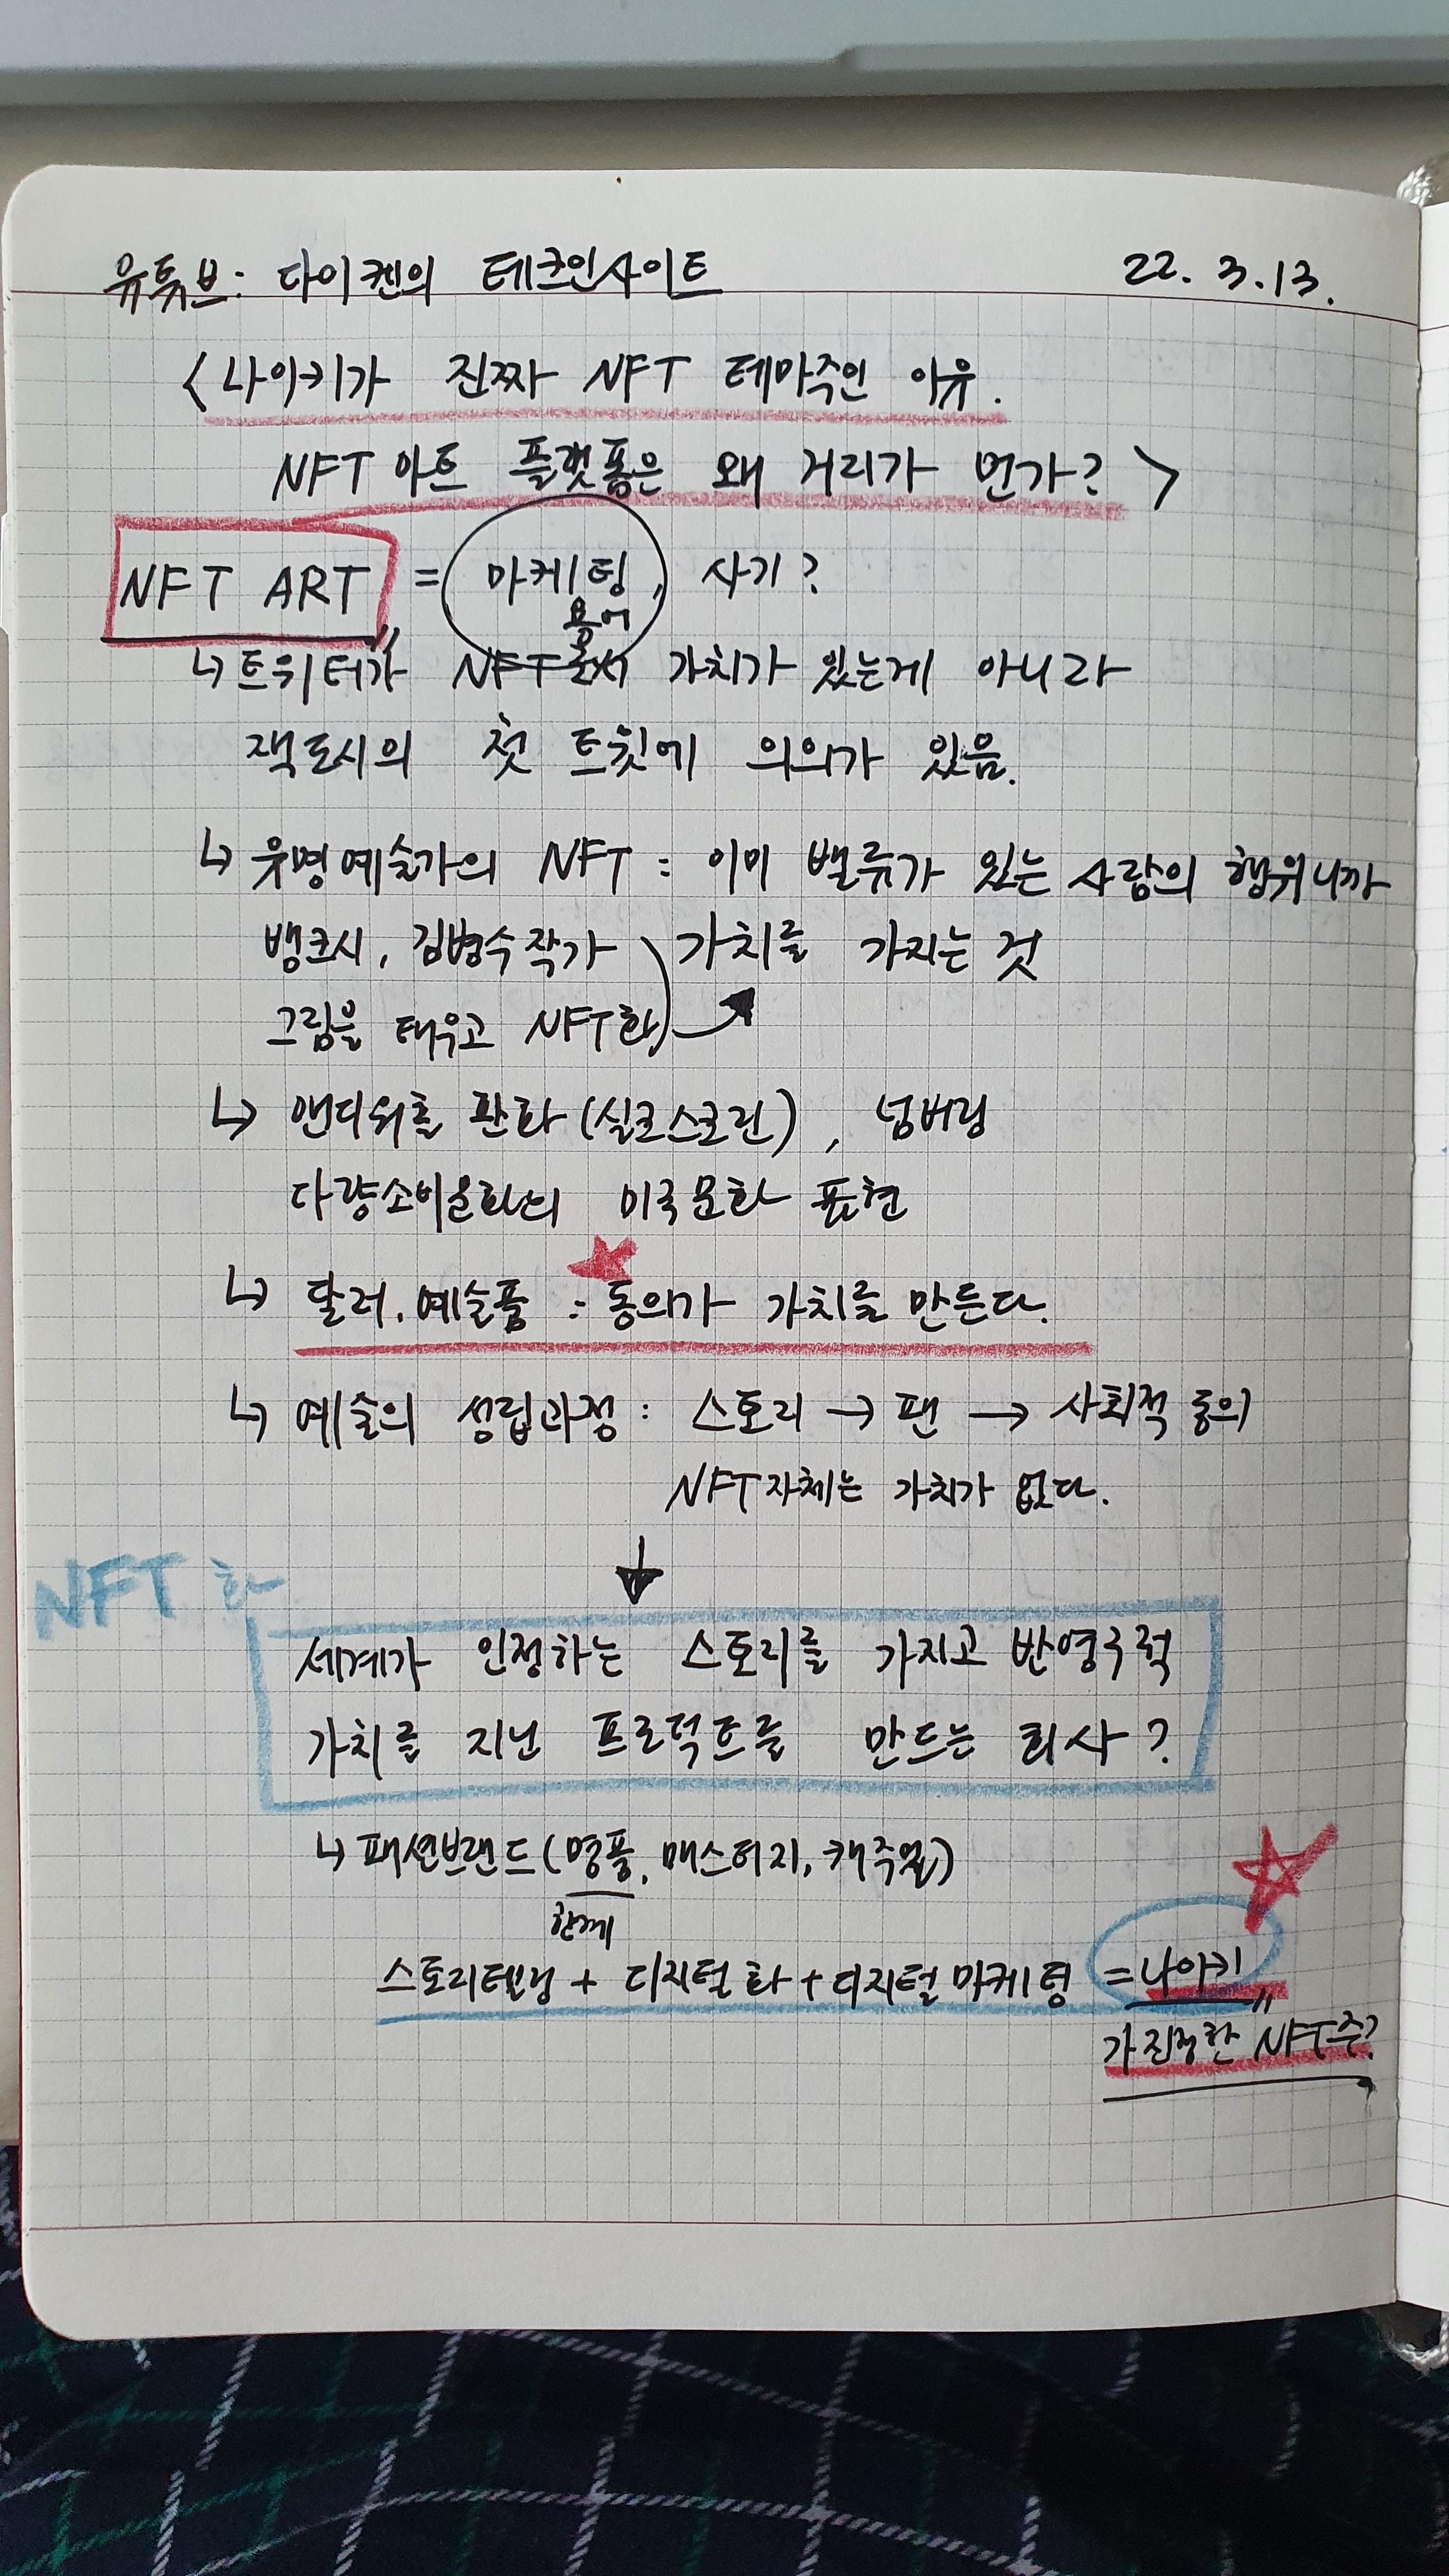 유튜브: 다이켄의 테크인사이트 22. 3. 13.
<나이키가 진짜 NFT 테마주인 이유.
NFT 아트 플랫폼은 왜 거리가 먼가? >
NFT ART = 마케팅, 사기?
용어
↳ 트위터가 NFT로서 가치가 있는게 아니라
잭도시의 첫 트윗에 의의가 있음.
↳ 유명예술가의 NFT : 이미 밸류가 있는 사람의 행위니까
뱅크시, 김병수작가 가치를 가지는 것
그림을 태우고 NFT화
↳ 앤디워홀 판화 (실크스크린) , 넘버링
다량소비문화의 미국문화 표현
↳ 달러, 예술품 : 동의가 가치를 만든다.
↳ 예술의 성립과정 : 스토리 → 팬 → 사회적 동의
NFT자체는 가치가 없다.
↓
NFT 화
세계가 인정하는 스토리를 가지고 반영구적
가치를 지닌 프로덕트를 만드는 회사 ?
↳ 패션브랜드 (명품, 매스티지, 캐주얼)
한계
스토리텔링 + 디지털 화 + 디지털 마케팅 = 나이키"
가 진정한 NFT주?